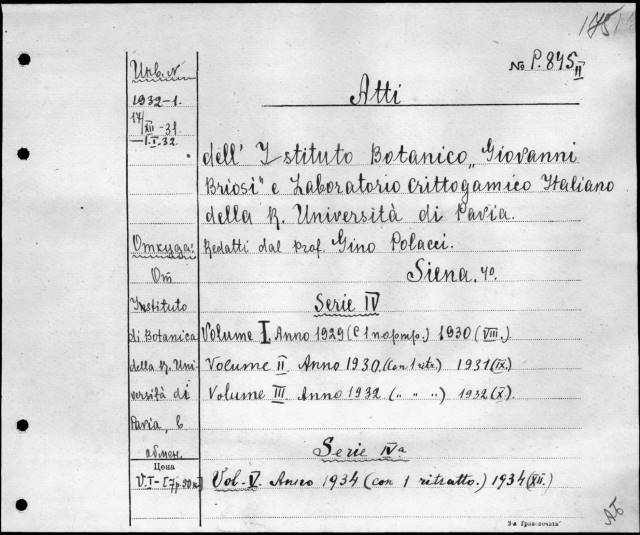 № P. 845 II
Atti
dell' Istituto Botanico „Giovanni
Briosi" e Laboratorio Crittogamico Italiano
della R. Università di Pavia.
Redatti dal prof. Gino Polacci.
Siena. 4º.
Serie IV
Volume I. Anno 1929 (с 1 портр.) 1930 (VIII.)
Volume II Anno 1930. (con 1 ritr.) 1931 (IX.)
Volume III Anno 1932 ( „ „ „ ) 1932 (X).
Serie IVª
Vol. V. Anno 1934 (con 1 ritratto.) 1934 (XII.)
Инв. №
1932-1.
17/XII-31
—1.I.32.
Откуда:
От
Instituto
di Botanica
della R. Uni-
versità di
Pavia, в
обмен.
Цена
V. I-
2-я Гран-ночная